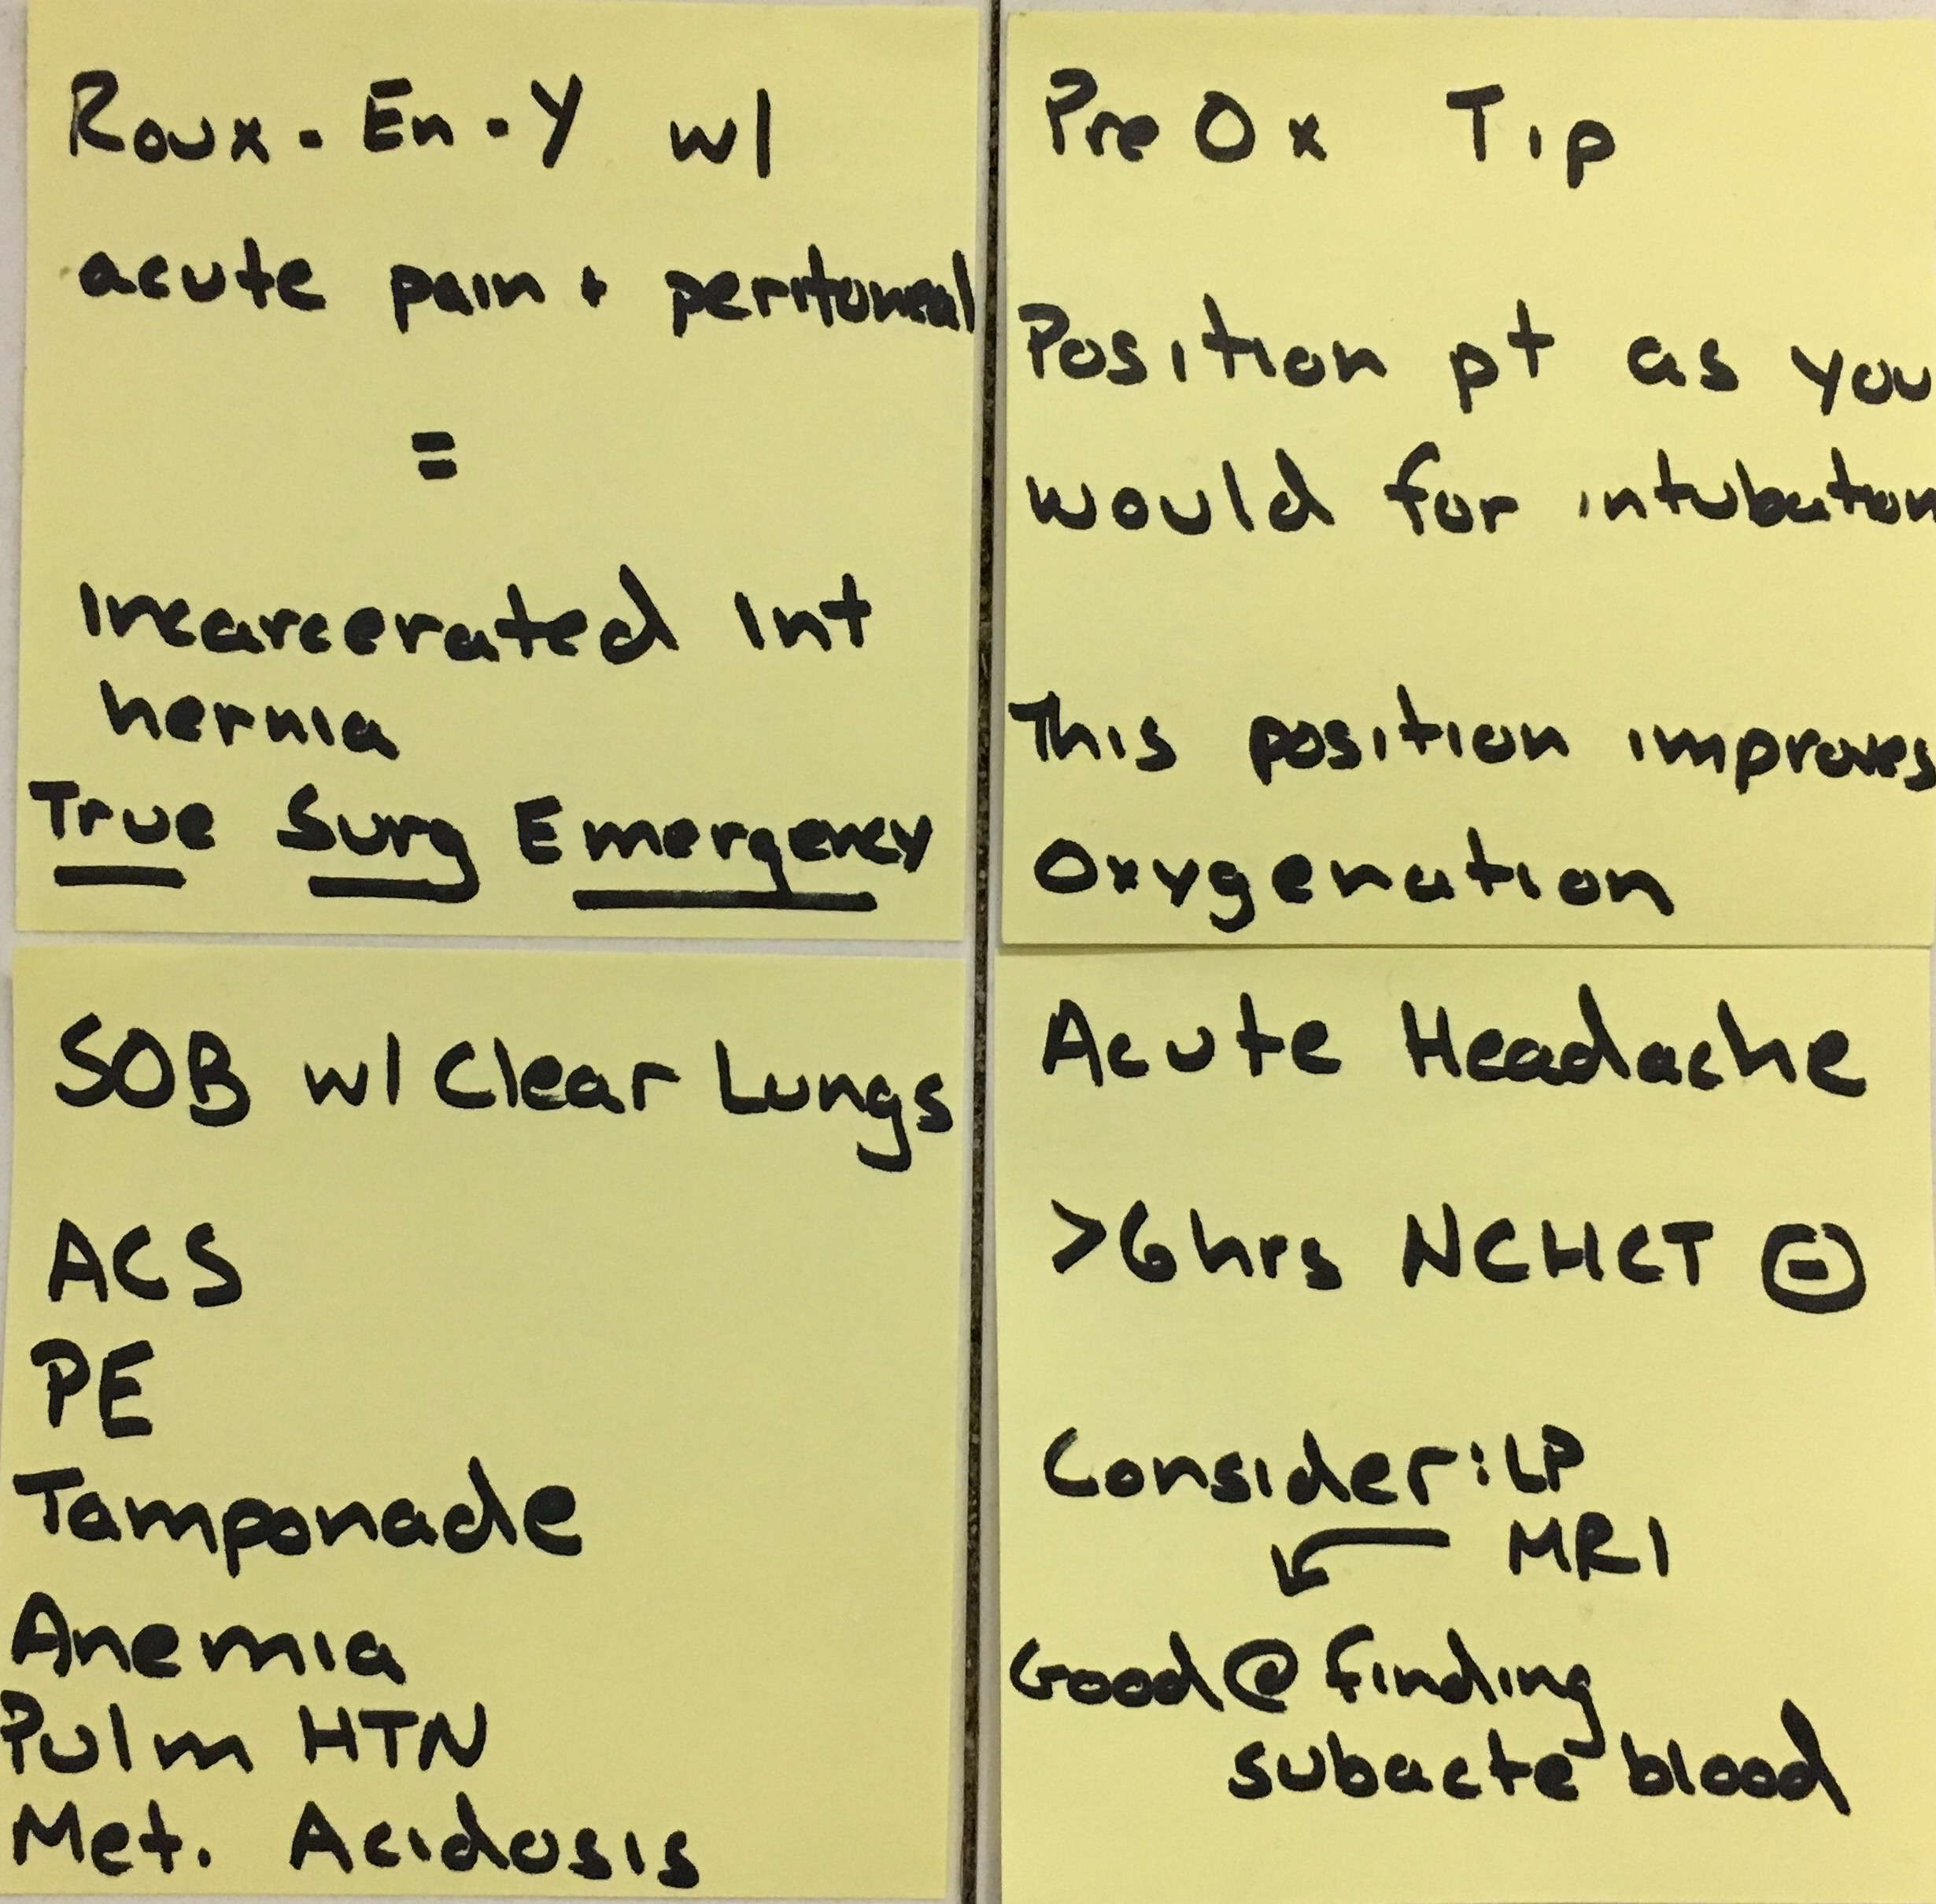 Roux-En-Y w/
acute pain + peritoneal
=
Incarcerated Int
hernia
True Surg Emergency
PreOx Tip
Position pt as you
would for intubation
This position improves
Oxygenation
SOB w/ Clear Lungs
ACS
PE
Tamponade
Anemia
Pulm HTN
Met. Acidosis
Acute Headache
>6hrs NCHCT ⊖
Consider: LP
MRI
Good @ finding
subacte blood